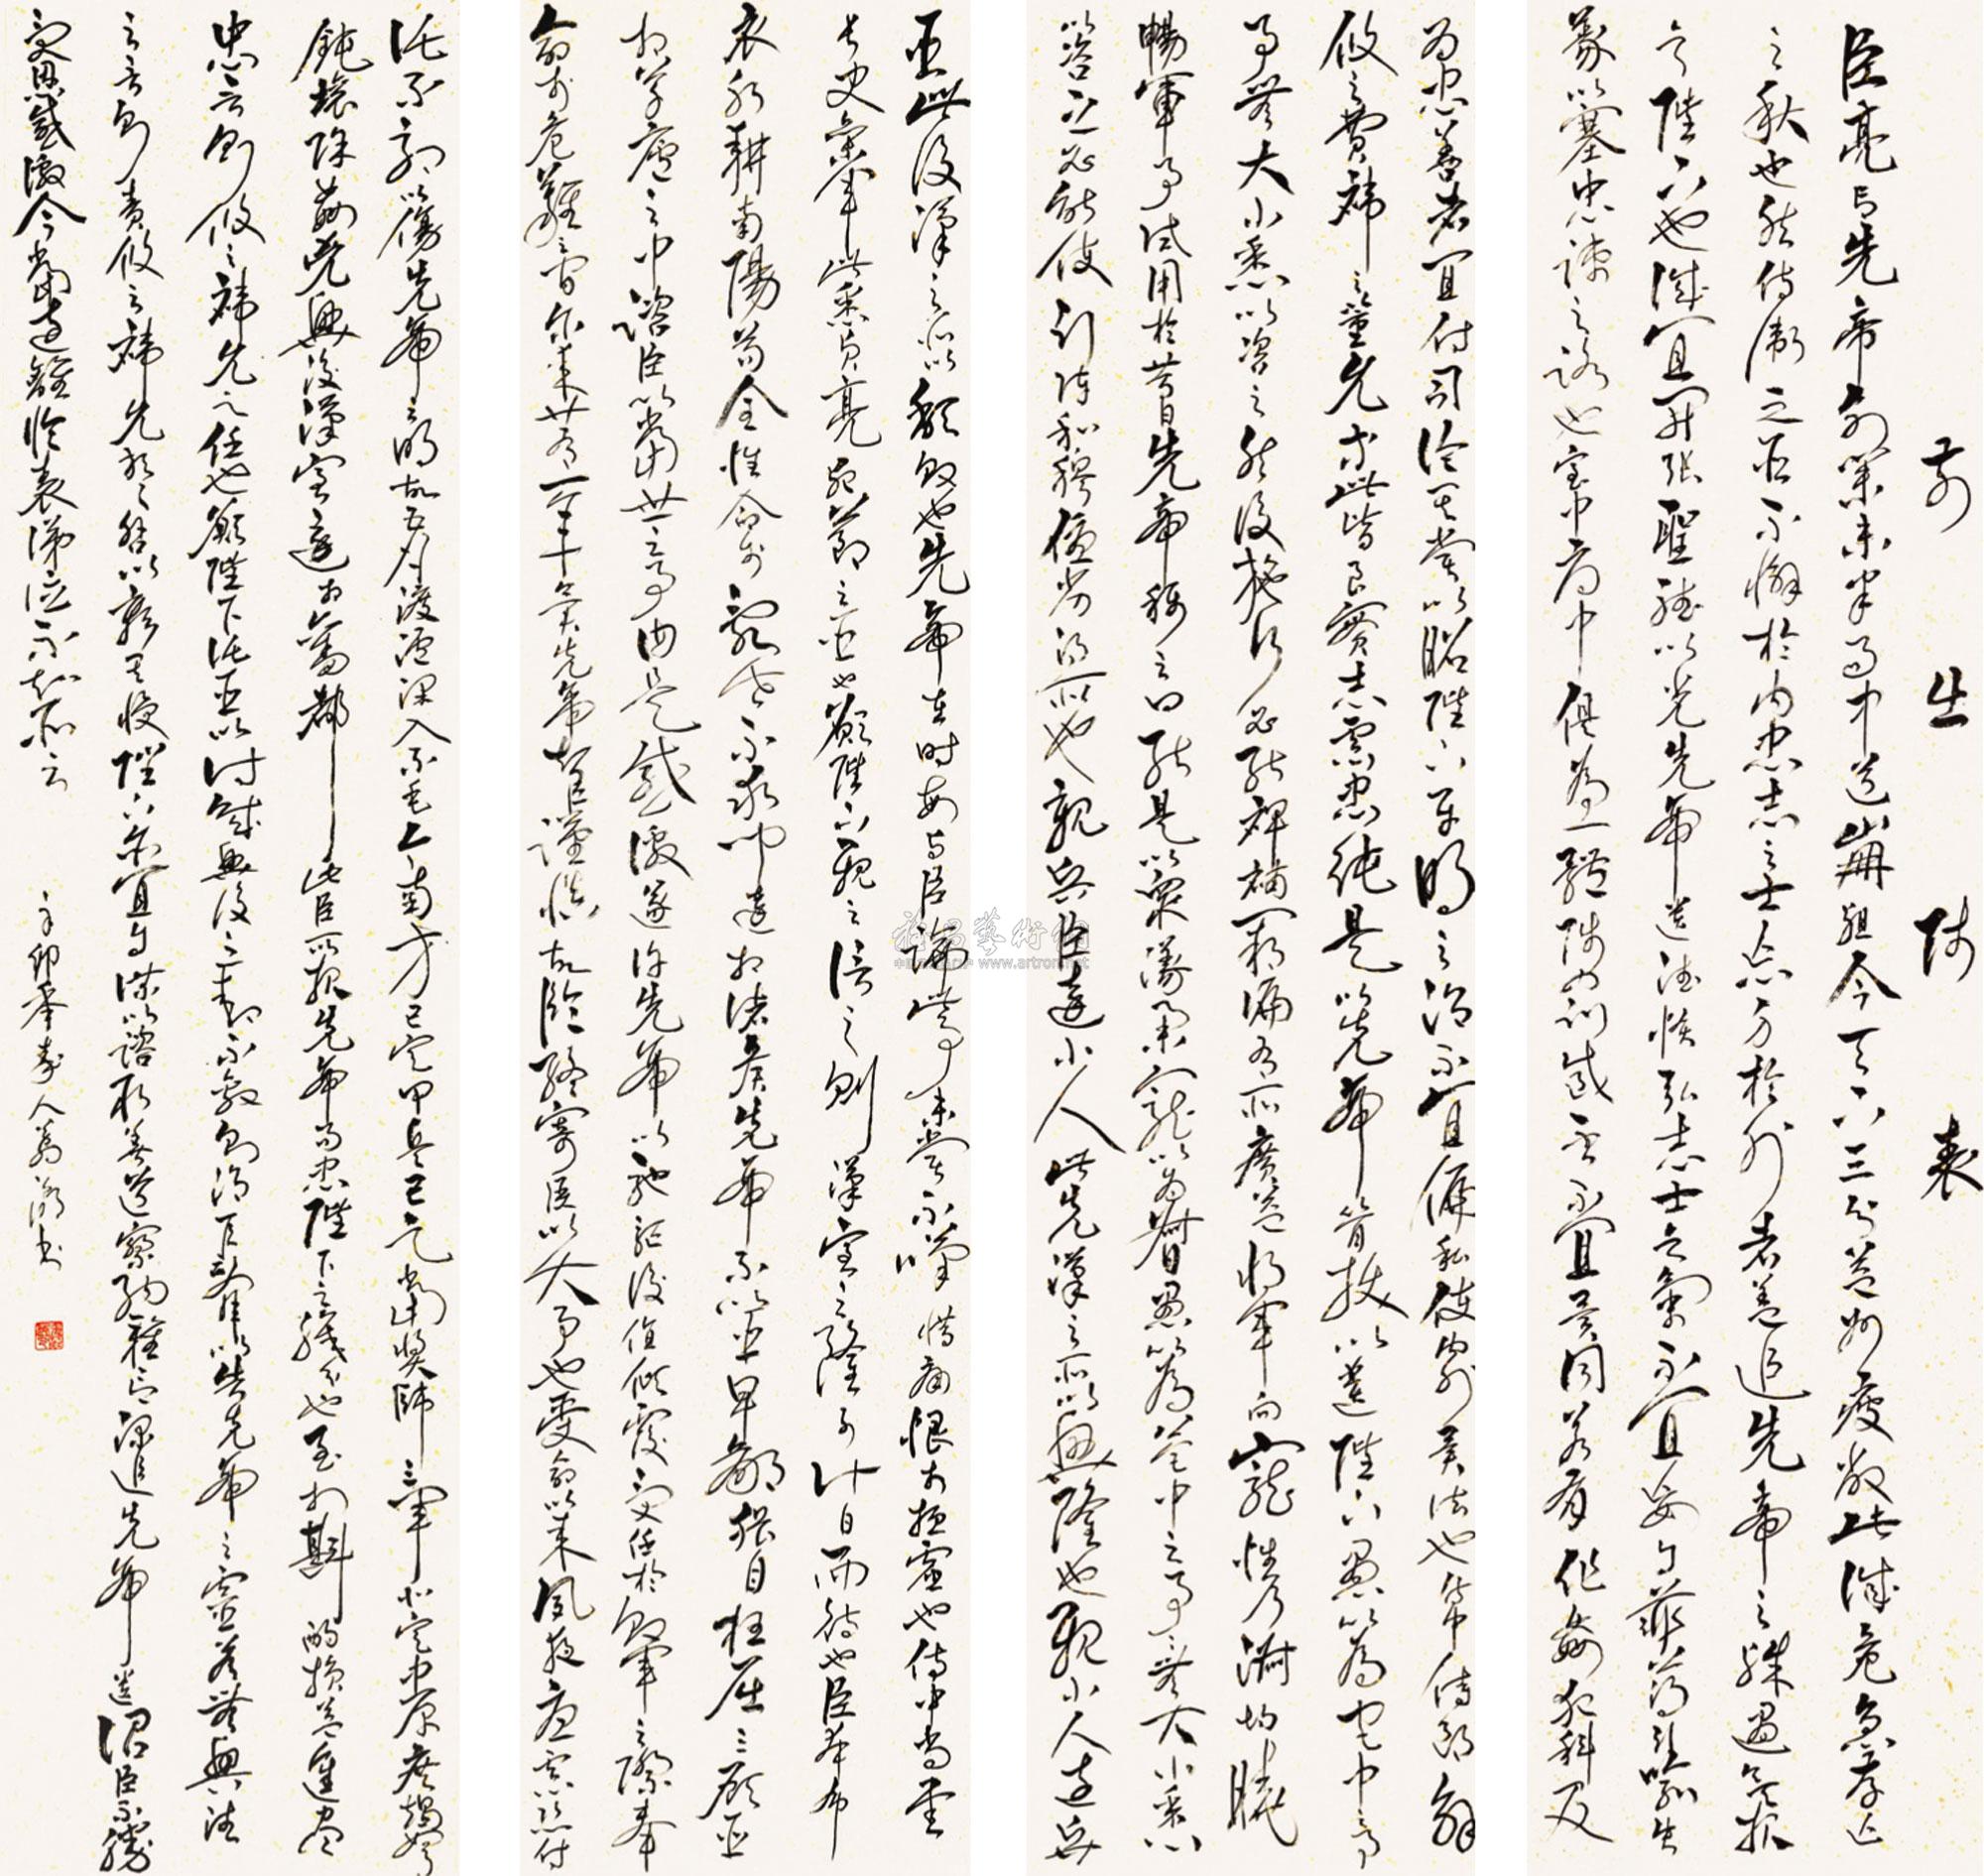 前出師表
臣亮言先帝創業未半而中道崩殂今天下三分益州疲敝此誠危急存亡
之秋也然侍衛之臣不懈於內忠志之士亡身於外者蓋追先帝之殊遇欲報
之陛下也誠宜開張聖聽以光先帝遺德恢弘志士之氣不宜妄自菲薄引喻失
義以塞忠諫之路也宮中府中俱為一體陟罰臧否不宜異同若有作姦犯科及
為忠善者宜付司論其賞以昭陛下平明之治不宜偏私使內外異法也侍中侍郎郭
攸之費禕之董允等此皆良實志慮忠純是以先帝簡拔以遺陛下愚以為宮中之事
事無大小悉以咨之然後施行必能裨補闕漏有所廣益將軍向寵性行淑均曉
暢軍事試用於昔日先帝稱之曰能是以眾議舉寵以為督愚以為營中之事無大小悉以
咨之必能使行陣和穆優劣得所也親賢臣遠小人此先漢之所以興隆也親小人遠賢
臣此後漢之所以頹敗也先帝在時每與臣論此事未嘗不嘆惜痛恨於桓靈也侍中尚書
長史參軍此悉貞亮死節之臣也願陛下親之信之則漢室之隆可計日而待也臣本布
衣躬耕南陽苟全性命於亂世不求聞達於諸侯先帝不以臣卑鄙猥自枉屈三顧臣
於草廬之中諮臣以當世之事由是感激遂許先帝以馳驅後值傾覆受任於敗軍之際奉
命於危難之間爾來廿有一年矣先帝知臣謹慎故臨終寄臣以大事也受命以來夙夜憂慮恐付
託不効以傷先帝之明故五月渡瀘深入不毛今南方已定甲兵已足當獎帥三軍北定中原庶竭駑
鈍攘除姦兇興復漢室還於舊都此臣所以報先帝而忠陛下之職分也至於斟酌損益進盡
忠言則攸之禕允之任也願陛下託臣以討賊興復之效不效則治臣之罪以告先帝之靈若無興德
之言則責攸之禕允等之咎以彰其慢陛下亦宜自謀以諮取善道察納雅言深追先帝遺詔臣不勝
受恩感激今當遠離臨表涕泣不知所云
辛卯春
www.artron.net